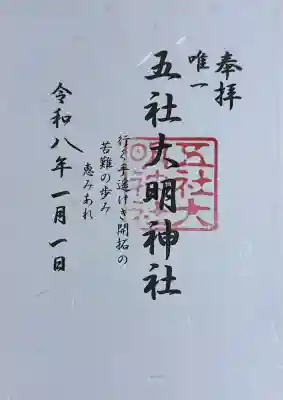 奉拝
唯一
五社大明神社
行く手遥けき開拓の
苦難の歩み
恵みあれ
令和八年一月一日